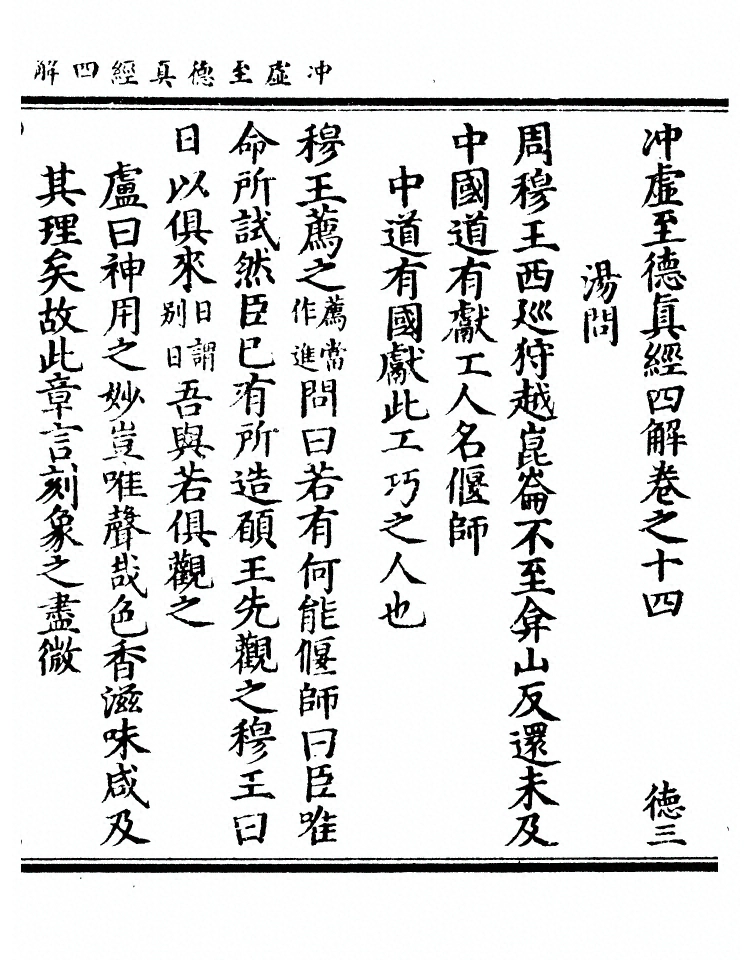 冲虛至德真經四解
冲虛至德真經四解卷之十四 德三
湯問
周穆王西廵狩越崑崙不至弇山反還未及
中國道有獻工人名偃師
中道有國獻此工巧之人也
穆王薦之薦當作進問曰若有何能偃師曰臣唯
命所試然臣已有所造願王先觀之穆王曰
日以俱來日謂別日吾與若俱觀之
盧曰神用之妙豈唯聲哉色香滋味咸及
其理矣故此章言刻象之盡微